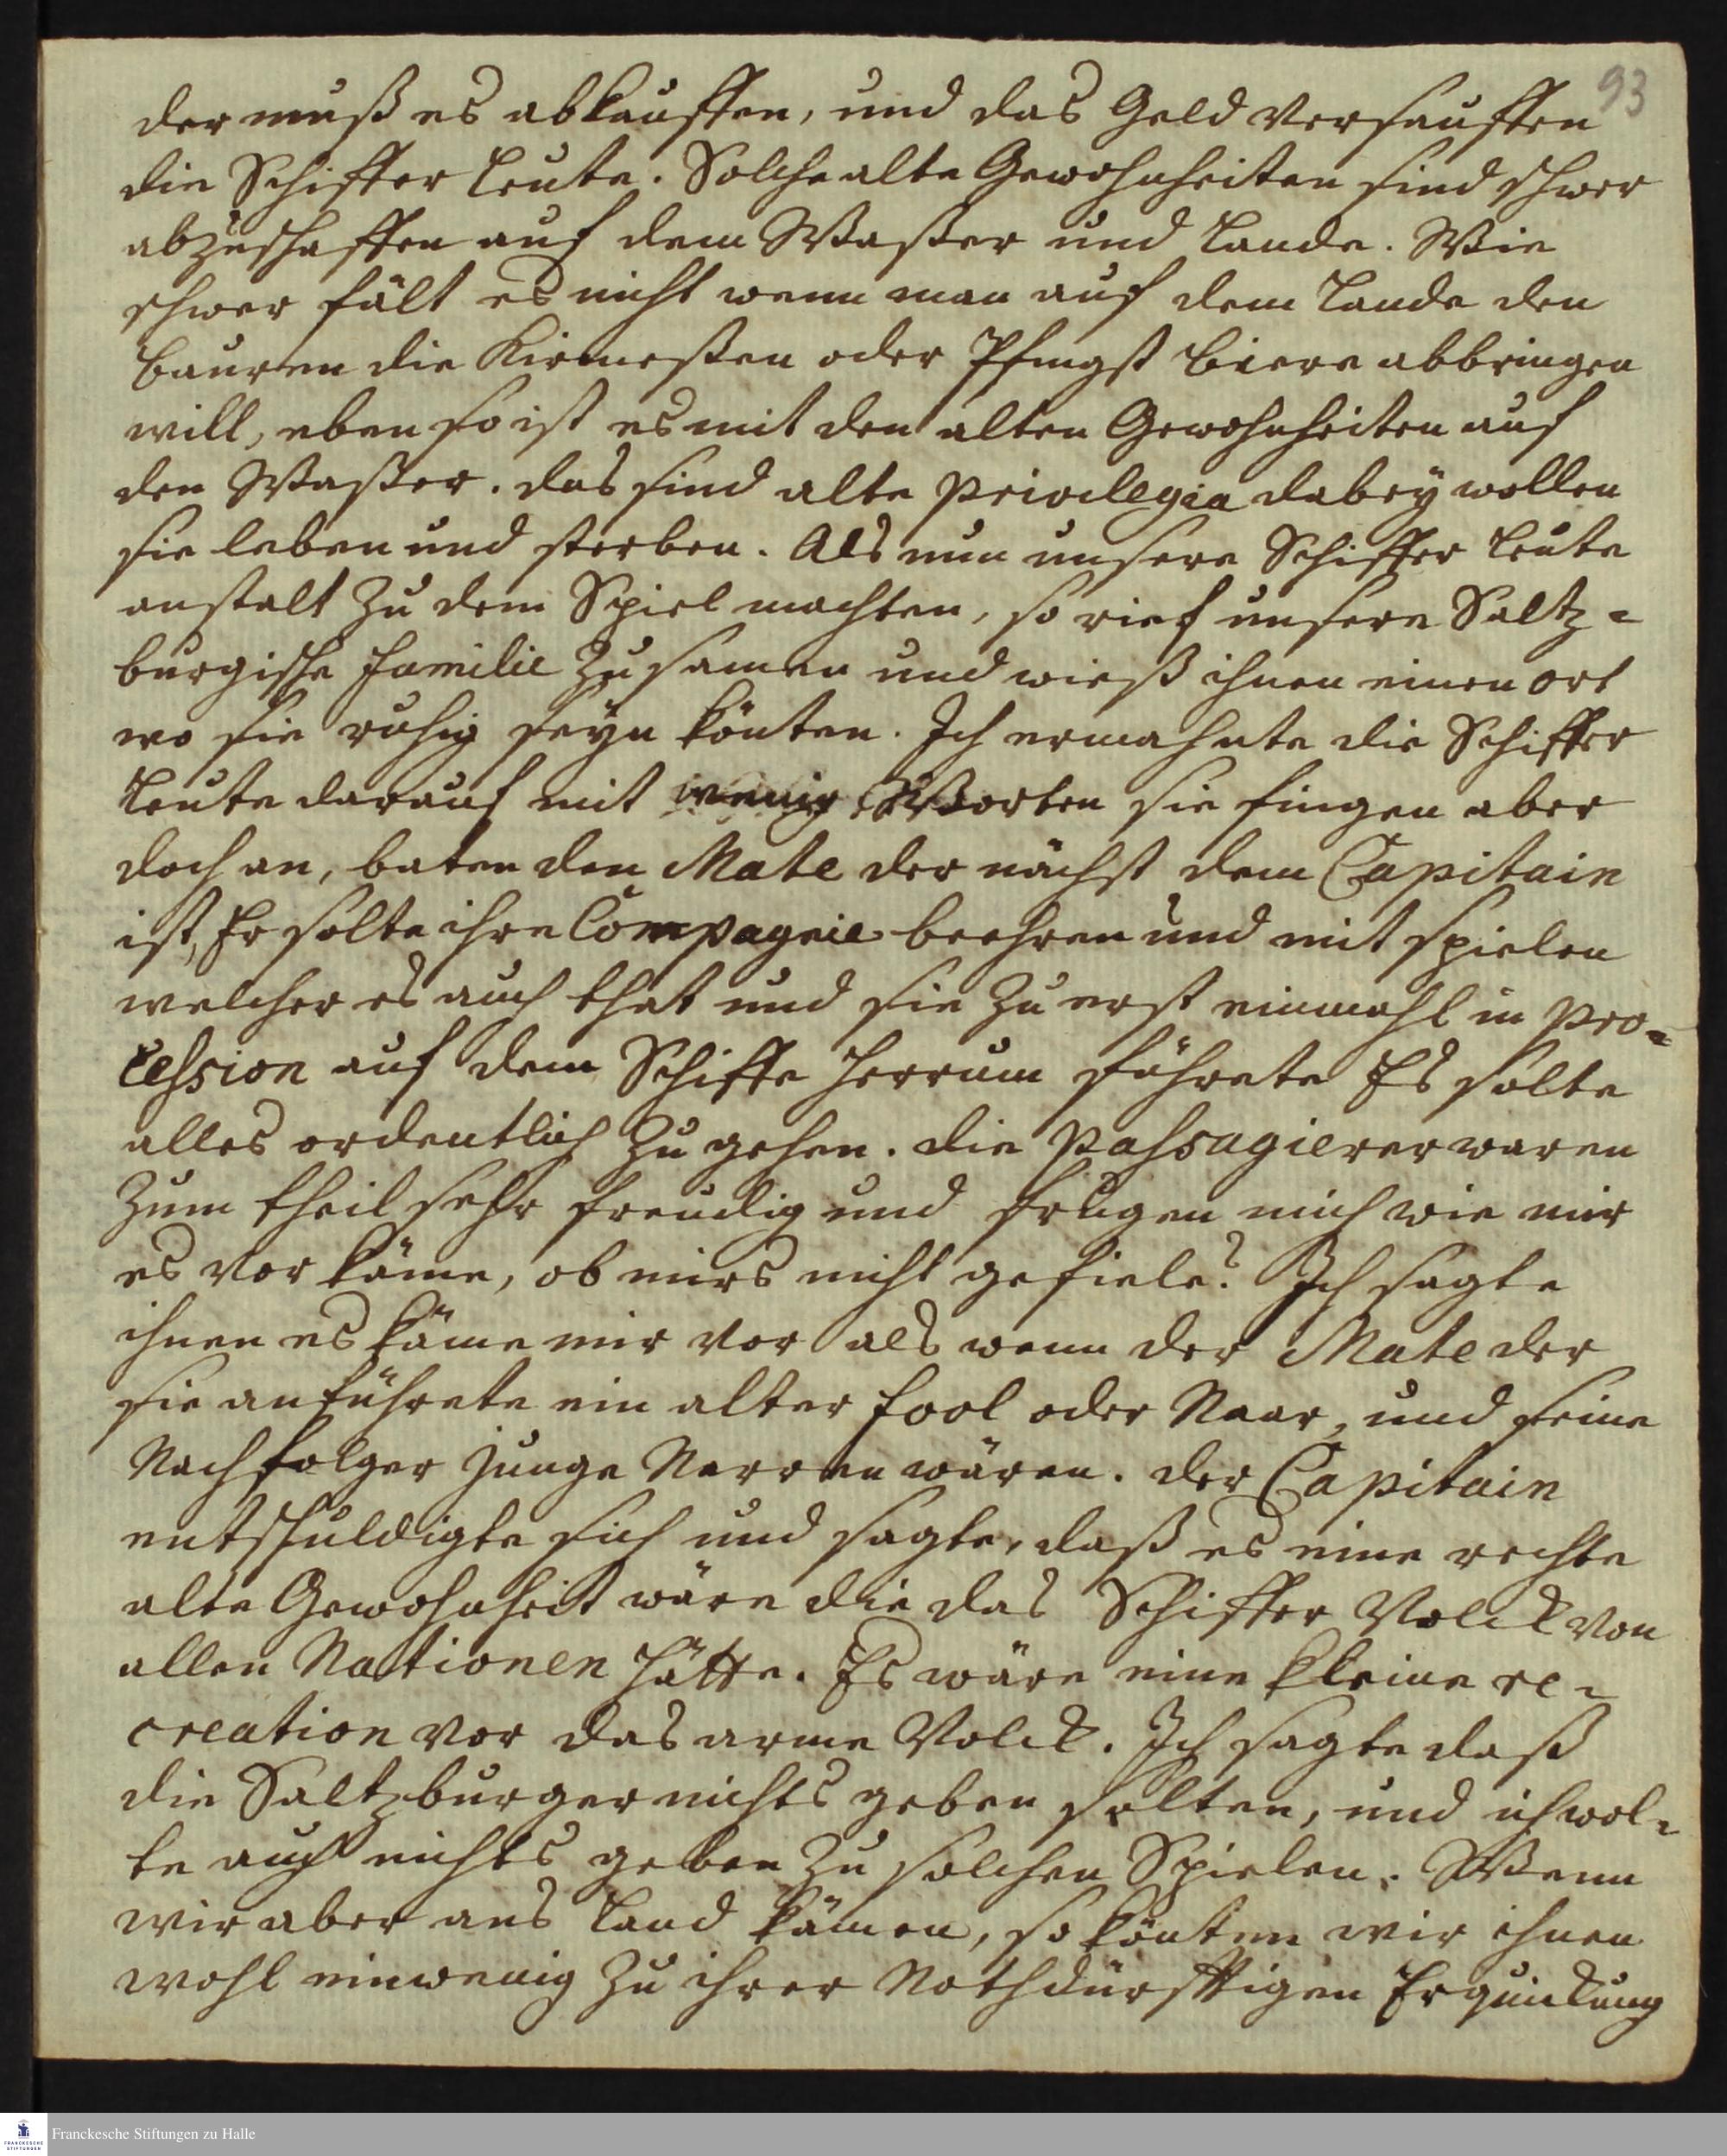 93
der muß es abkauffen, und das Geld versauffen
die Schiffer Leute. Solche alte Gewohnheiten sind schwer
abzuschaffen auf dem Waßer und Lande. Wie
schwer fält es nicht wenn man auf dem Lande den
Bauren die Kirmeßen oder Pfingst Biere abbringen
will, eben so ist es mit den alten Gewohnheiten auf
den Waßer. das sind alte privilegia dabey wollen
sie leben und sterben. Als nun unsere Schiffer Leute
anstalt zu dem Spiel machten, so rief unsere Saltz=
burgische Familie zusamen und wieß ihnen einen Ort
wo sie ruhig seyn könten. Ich ermahnte die Schiffer
Leute darauf mit wenig Worten sie fingen aber
doch an, baten den Mate der nächst dem Capitain
ist, Er solte ihre Compagnie beehren und mit spielen
welcher es auch that und sie zu erst einmahl in Pro=
cession auf dem Schiffe herrum führete Es solte
alles ordentlich zu gehen. die Passagierer waren
zum theil sehr freudig und frugen mich wie mir
es vor käme, ob mirs nicht gefiele? Ich sagte
ihnen es käme mir vor als wenn der Mate der
sie anführete ein alter fool oder Naar, und seine
Nachfolger junge Narren wären. der Capitain
entschuldigte sich und sagte, daß es eine rechte
alte Gewohnheit wäre die das Schiffer Volck von
allen Nationen hätte. Es wäre eine kleine re=
creation vor das arme Volck. Ich sagte daß
die Saltzburger nichts geben solten, und ich wol=
te auch nichts geben zu solchen Spielen. Wenn
wir aber ans Land kämen, so könten wir ihnen
wohl ein wenig zu ihrer Nothdürfftigen Erquickung
Franckesche Stiftungen zu Halle
FRANCKESCHE
STIFTUNGEN